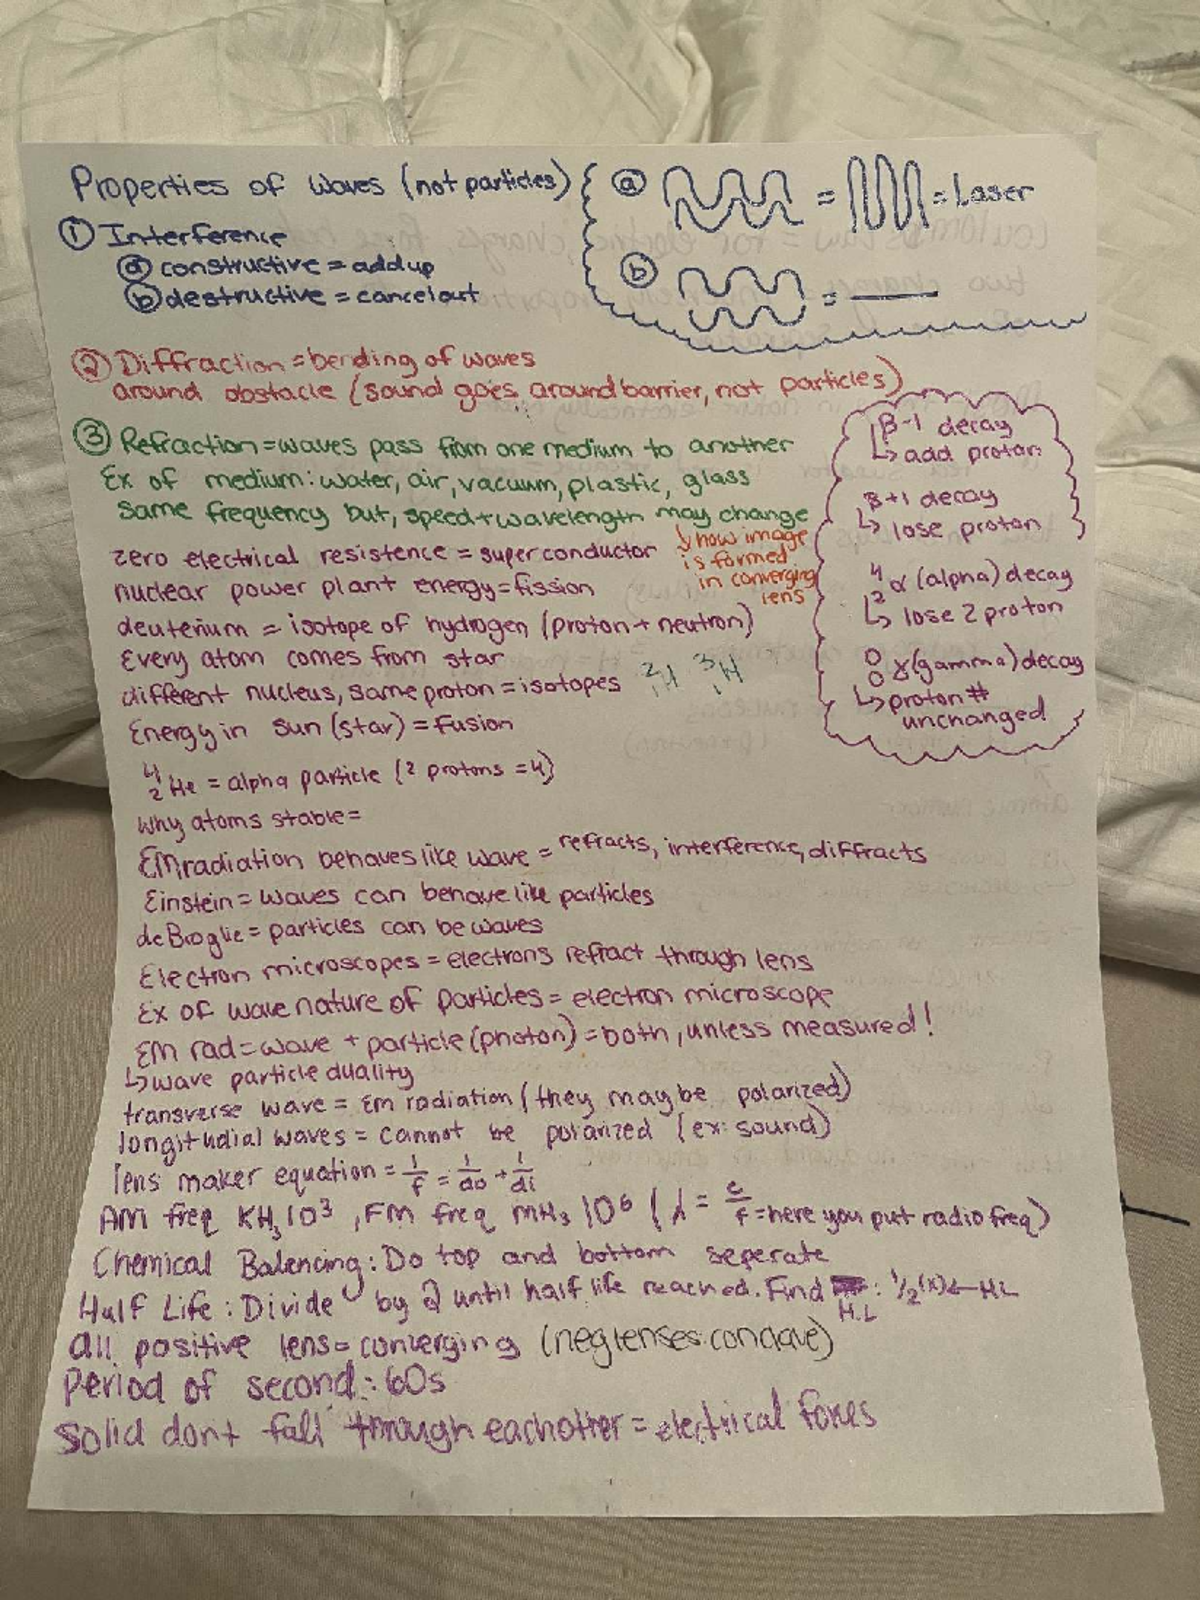 Properties of Waves (not particles)
① Interference
ⓐ constructive = add up
ⓑ destructive = cancel out
ⓐ = = Laser
ⓑ =
② Diffraction = bending of waves
around obstacle (sound goes around barrier, not particles)
③ Refraction = waves pass from one medium to another
Ex of medium: water, air, vacuum, plastic, glass
same frequency but, speed + wavelength may change
↳ how image
is formed
in converging
lens
β-1 decay
↳ add proton
β+1 decay
↳ lose proton
4 2 α (alpha) decay
↳ lose 2 proton
0 0 γ (gamma) decay
↳ proton #
unchanged
zero electrical resistence = superconductor
nuclear power plant energy = fission
deuterium = isotope of hydrogen (proton + neutron)
Every atom comes from star
different nucleus, same proton = isotopes ²₁H ³₁H
Energy in sun (star) = Fusion
⁴₂He = alpha particle (2 protons = 4)
Why atoms stable =
EM radiation behaves like wave = refracts, interference, diffracts
Einstein = Waves can behave like particles
deBroglie = particles can be waves
Electron microscopes = electrons refract through lens
Ex of wave nature of particles = electron microscope
EM rad = wave + particle (photon) = both, unless measured!
↳ wave particle duality
transverse wave = Em radiation (they may be polarized)
longitudial waves = cannot be polarized (ex: sound)
lens maker equation = 1/f = 1/do + 1/di
AM freq KHz 10³, FM freq mHz 10⁶ (λ = c/f = here you put radio freq)
Chemical Balancing: Do top and bottom seperate
Half Life: Divide by 2 until half life reached. Find H.L: 1/2(x) ← HL
all positive lens = converging (neg lenses: concave)
Period of second: 60s
solid don't fall through eachother = electrical forces